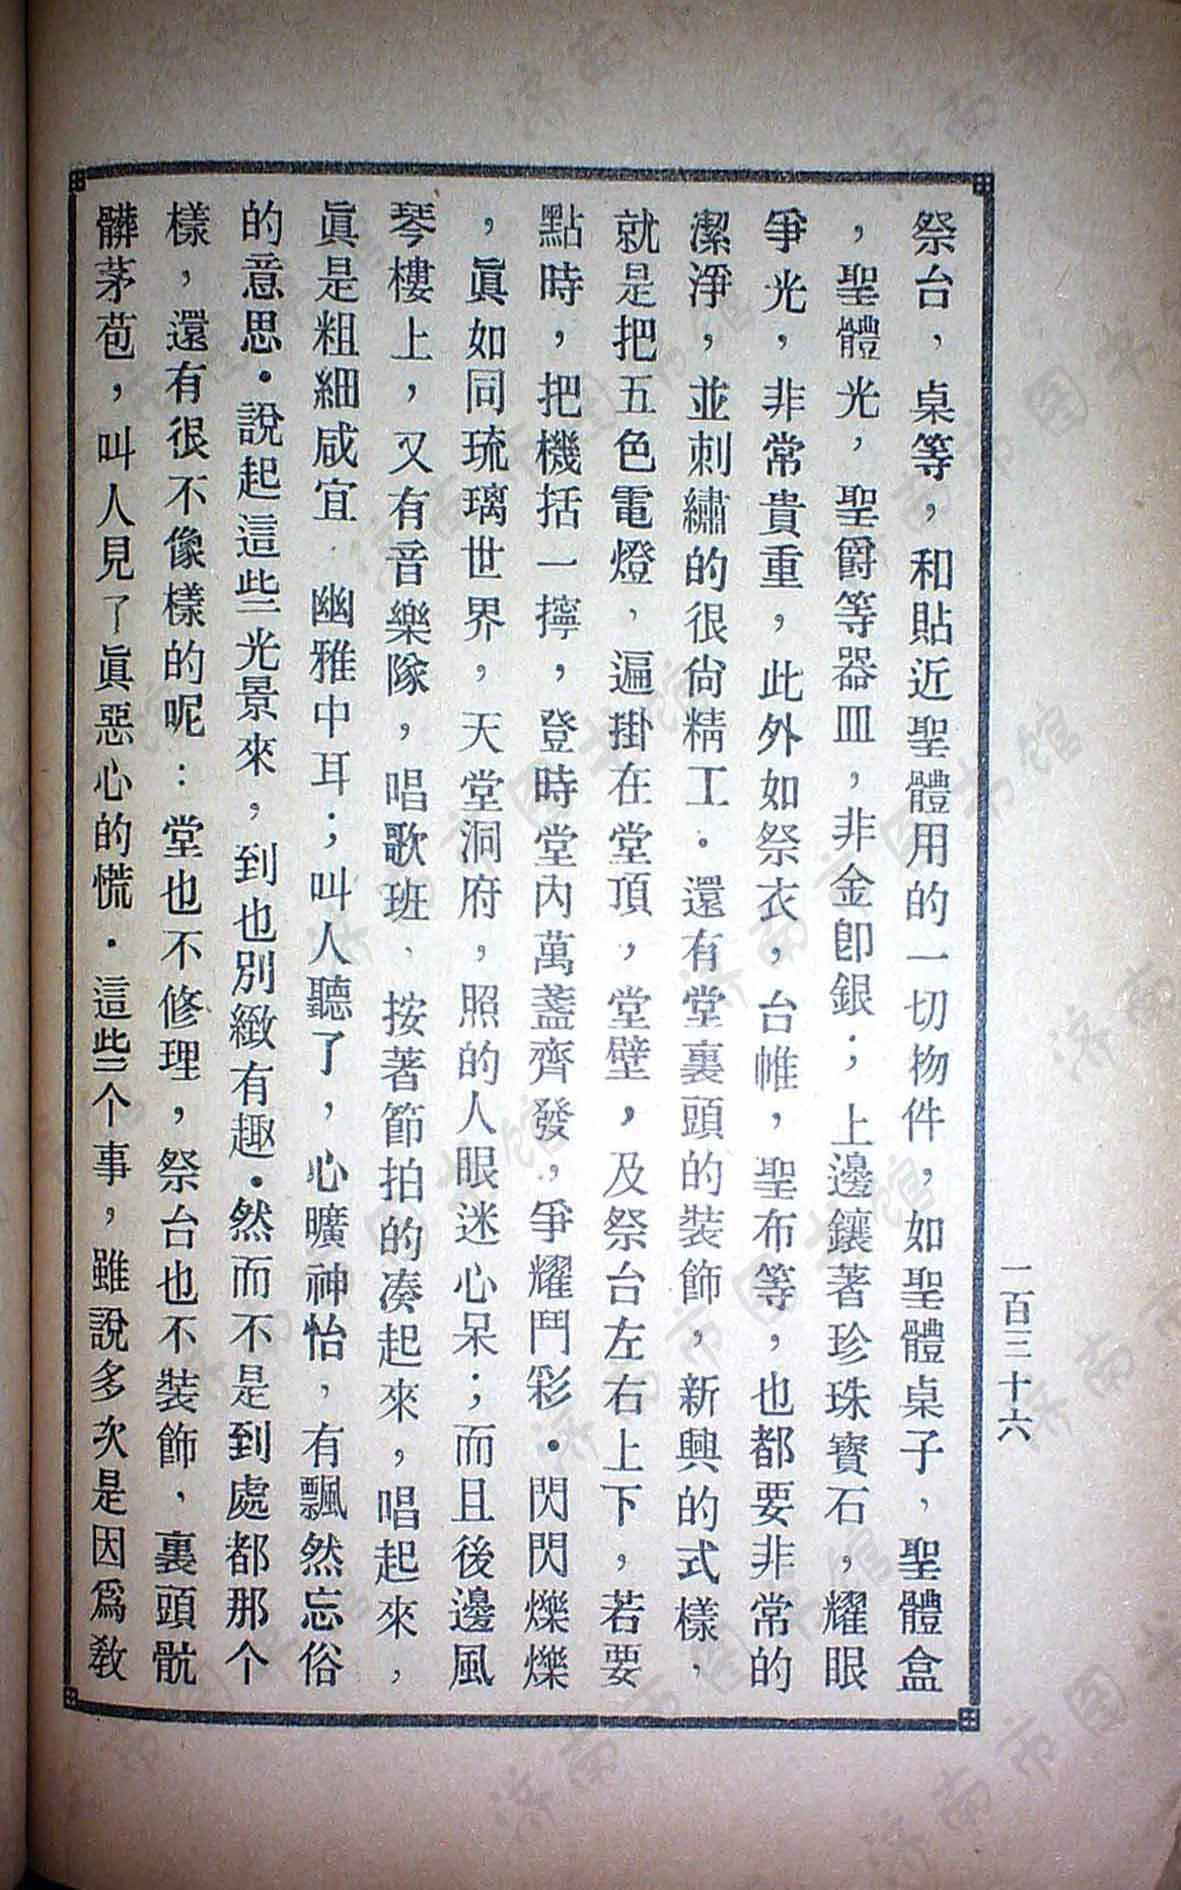 一百三十六
祭台，桌等，和貼近聖體用的一切物件，如聖體桌子，聖體盒
，聖體光，聖爵等器皿，非金卽銀；上邊鑲著珍珠寶石，耀眼
爭光，非常貴重，此外如祭衣，台帷，聖布等，也都要非常的
潔淨，並刺繡的很尙精工．還有堂裏頭的裝飾，新興的式樣，
就是把五色電燈，遍掛在堂頂，堂壁，及祭台左右上下，若要
點時，把機括一擰，登時堂內萬盞齊發，爭耀鬥彩．閃閃爍爍
，眞如同琉璃世界，天堂洞府，照的人眼迷心呆；而且後邊風
琴樓上，又有音樂隊，唱歌班，按著節拍的凑起來，唱起來，
眞是粗細咸宜，幽雅中耳；叫人聽了，心曠神怡，有飄然忘俗
的意思．說起這些光景來，到也別緻有趣．然而不是到處都那个
樣，還有很不像樣的呢：堂也不修理，祭台也不裝飾，裏頭骯
髒茅苞，叫人見了眞惡心的慌．這些个事，雖說多次是因爲敎
济南市图书馆